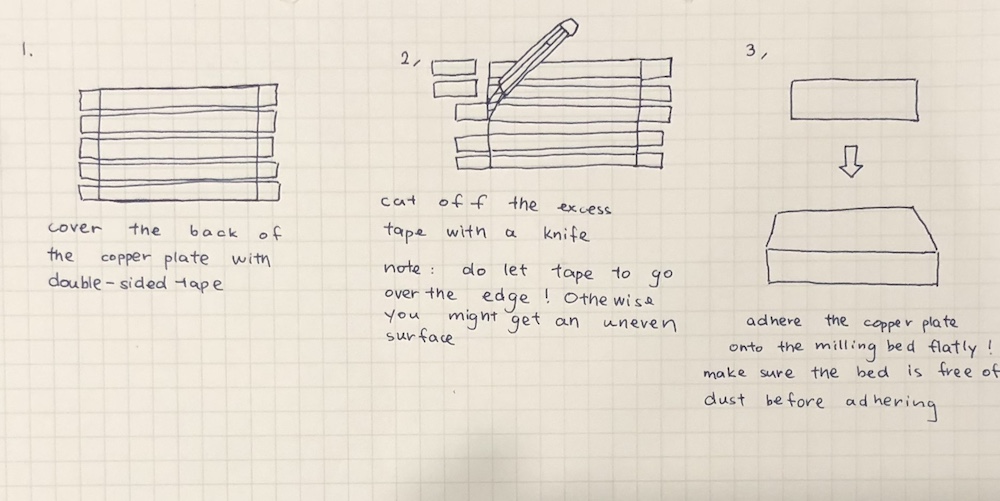 1.
cover the back of
the copper plate with
double-sided tape
2,
cut off the excess
tape with a knife
note: do let tape to go
over the edge! Othewise
you might get an uneven
surface
3,
adhere the copper plate
onto the milling bed flatly!
make sure the bed is free of
dust before adhering